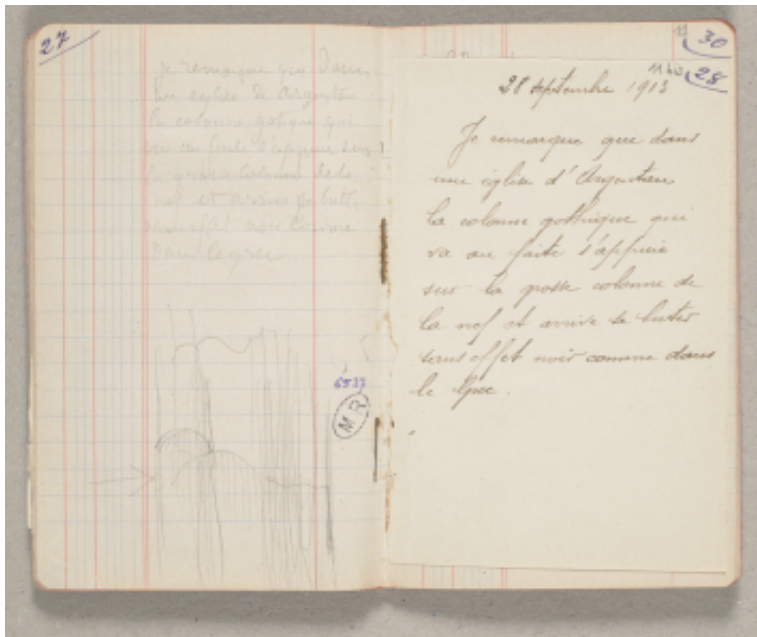 27
je remarque que dans
une eglise de Argentan
la colonne gotique qui
va au faite s'appuie sur
la grosse colonne de la
nef et arrive se butter
sans effet noir comme
dans le grec
6533
MR
11
30
11 bis
28
28 septembre 1913
Je remarque que dans
une église d'Argentan
la colonne gothique qui
va au faite s'appuie
sur la grosse colonne de
la nef et arrive se buter
sans effet noir comme dans
le grec.